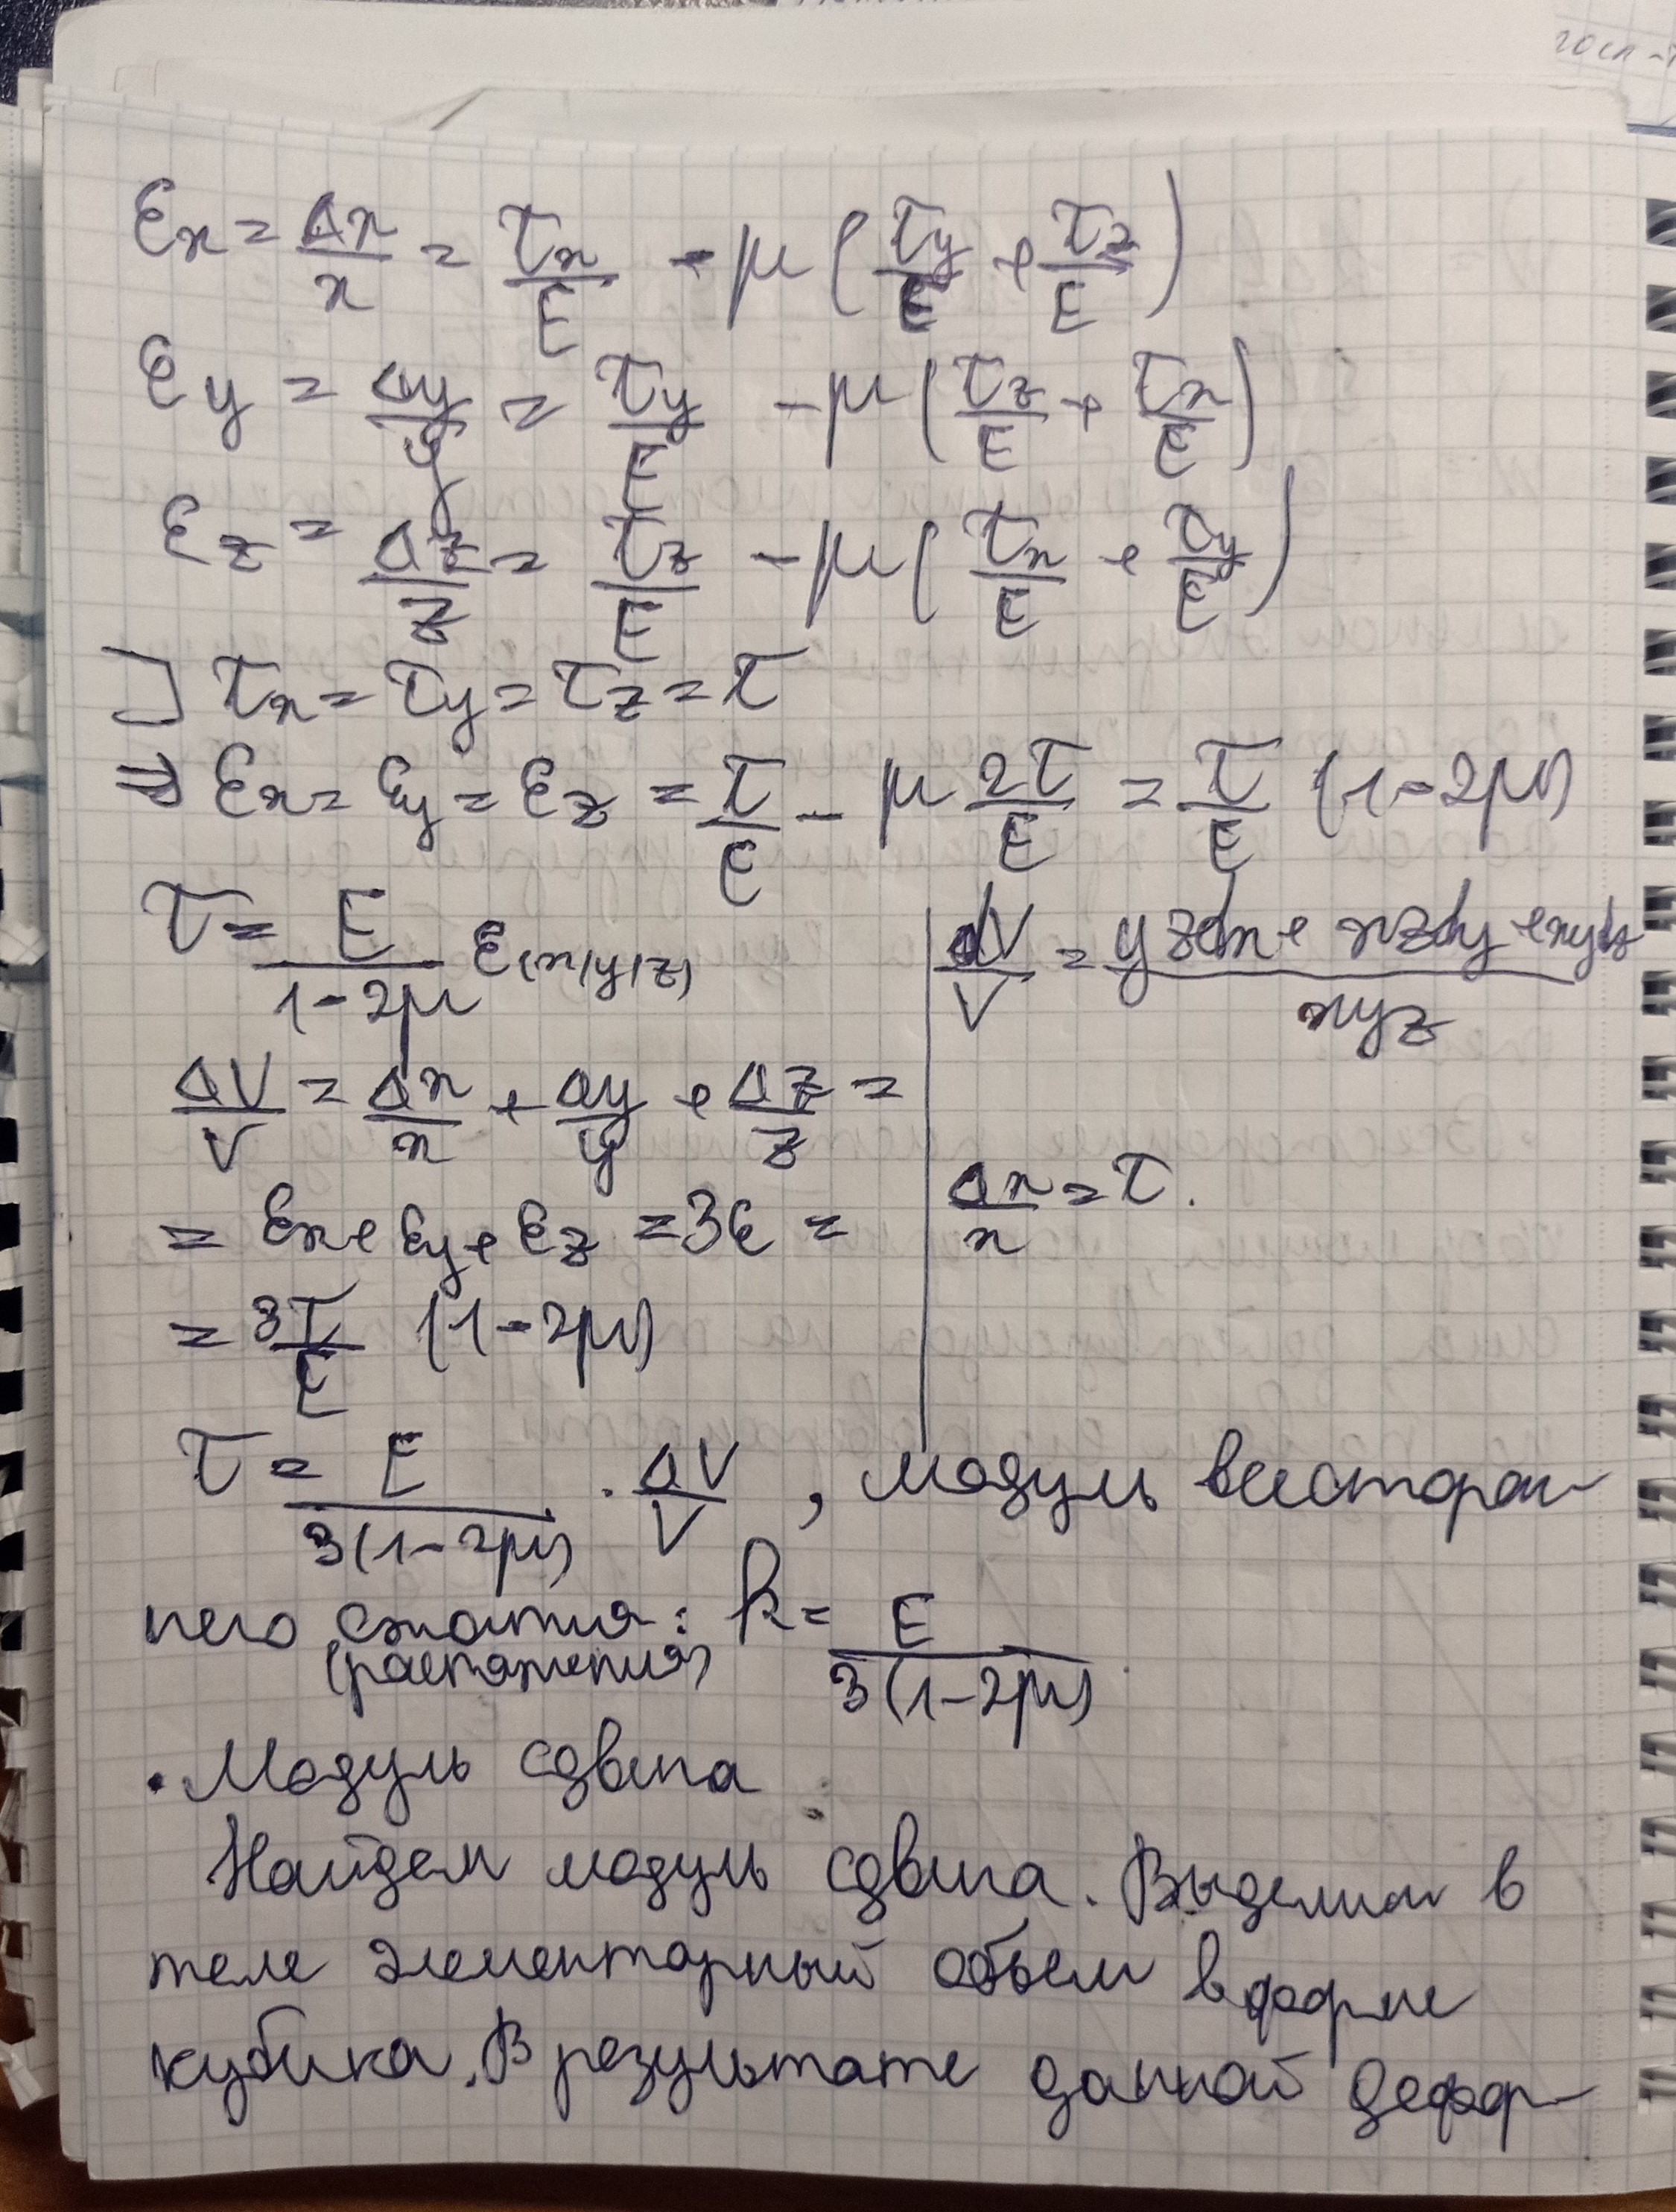 εx = Δx/x = τx/E - μ(τy/E + τz/E)
εy = Δy/y = τy/E - μ(τz/E + τx/E)
εz = Δz/z = τz/E - μ(τx/E + τy/E)
] τx = τy = τz = τ
⇒ εx = εy = εz = τ/E - μ 2τ/E = τ/E (1-2μ)
τ = E/(1-2μ) ε(x/y/z)
dV/V = (yzdx + xzdy + xydz)/xyz
ΔV/V = Δx/x + Δy/y + Δz/z =
= εx + εy + εz = 3ε =
Δx/x = τ.
= 3τ/E (1-2μ)
τ = E/(3(1-2μ)) · ΔV/V , модуль всесторон-
него сжатия: k = E/(3(1-2μ))
(растяжения)
• Модуль сдвига
Найдем модуль сдвига. Выделим в
теле элементарный объем в форме
кубика. В результате данной дефор-